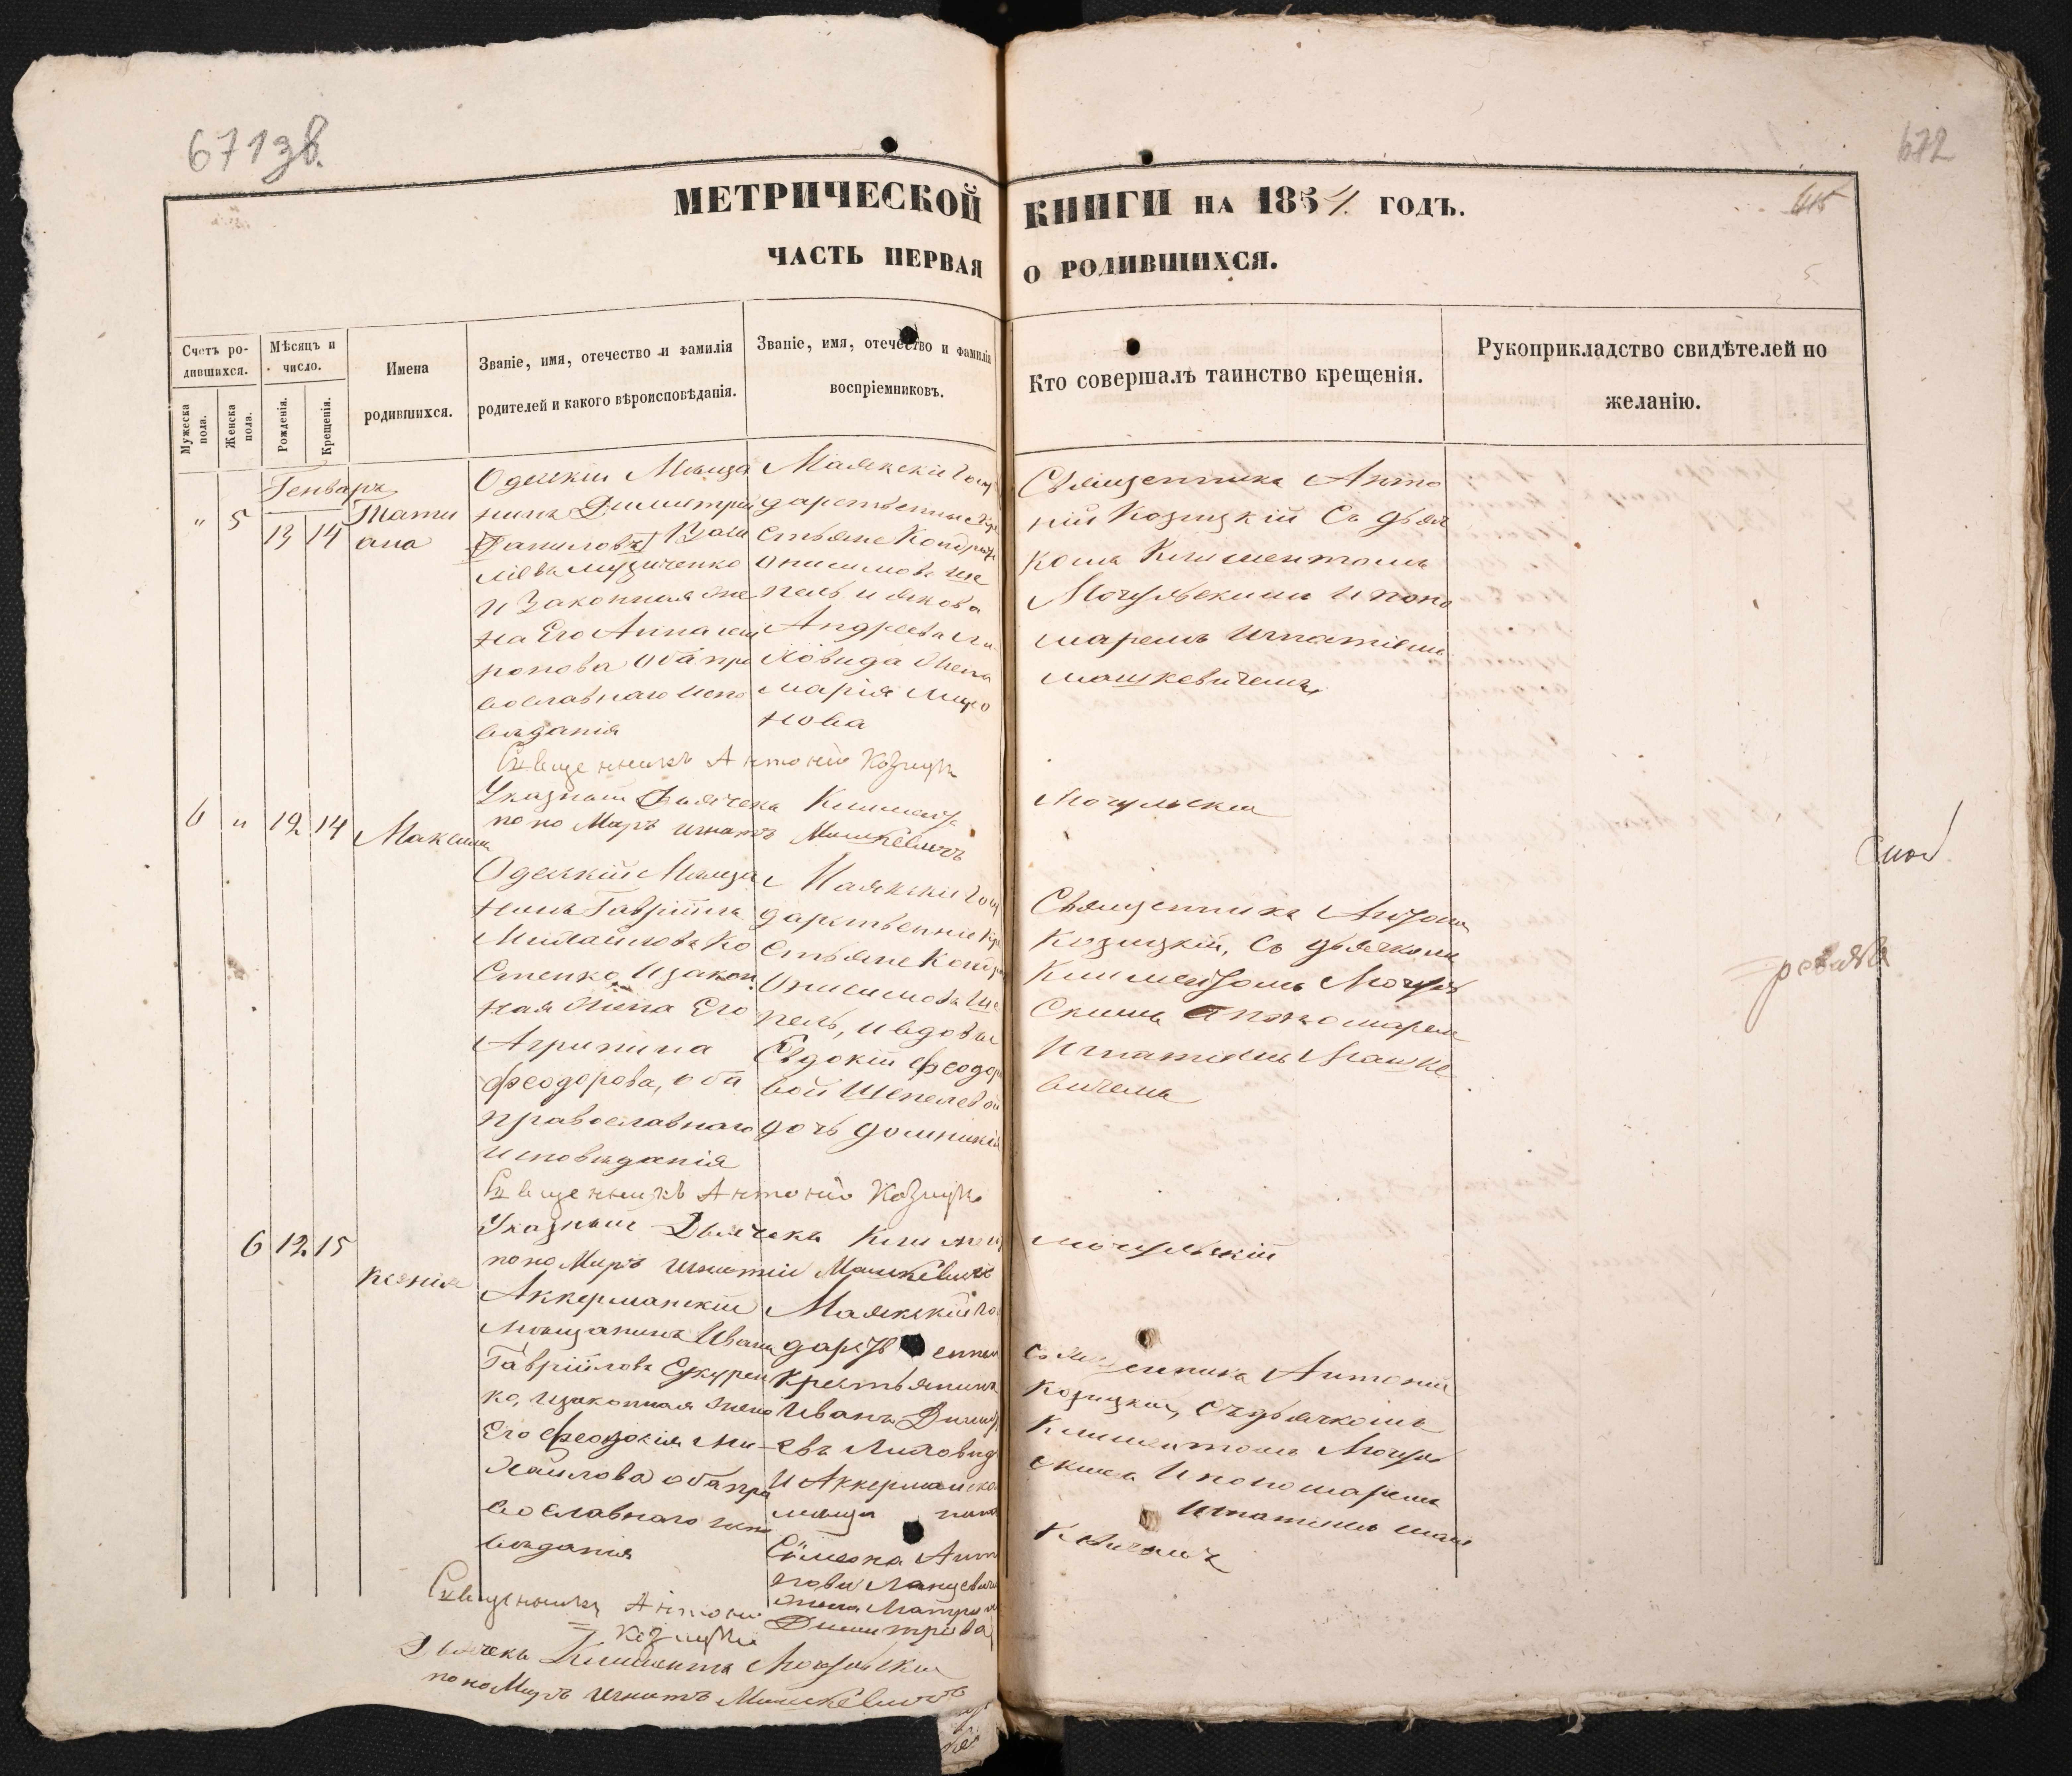 671 зв.
672
МЕТРИЧЕСКОЙ КНИГИ НА 1854 ГОДЪ.
ЧАСТЬ ПЕРВАЯ О РОДИВШИХСЯ.
Счетъ ро-
дившихся.
Мѣсяцъ и
число.
Имена
родившихся.
Званіе, имя, отечество и фамилія
родителей и какого вѣроисповѣданія.
Званіе, имя, отечество и фамилія
воспріемниковъ.
Кто совершалъ таинство крещенія.
Рукоприкладство свидѣтелей по
желанію.
Мужеска
пола.
Женска
пола.
Рожденія.
Крещенія.
Генваръ
" 5 13 14
Тати
ана
Одескій Мѣща
нинъ Димитрій
Даниловъ
Музиченко
и Законная же
на Его Анна
ронова оба пра
вославнаго испо
вѣданія
Маякскіе Госу
дарственные Кре
стьяне Кондратъ
Онисимовъ Ше
пель и Якова
Андреева Ли
ховида Жена
Марія
нова
Священникъ Анто
ній Козицкій Съ дьяч
комъ Климентомъ
Мочульскимъ и поно
маремъ Игнатіемъ
Машкевичемъ
Священникъ Антоній Козицкій
Указный Дьячекъ Климентъ Мочульскій
пономаръ Игнатъ Машкевичъ
6 " 12 14
Максимъ
Одескій Мѣща
нинъ Гавріилъ
Михайловъ Ко
стенко, и закон
ная жена Его
Агрипина
Феодорова, оба
православнаго
исповѣданія
Маякскіе Госу
дарственніе Кре
стьяне Кондратъ
Онисимовъ Ше
пель, и вдовы
Евдокіи Феодоро
вой Шепелевой
дочь Домникія
Священникъ Антоній
Козицкій, Съ дьячкомъ
Климентомъ Мочуль
скимъ и пономаремъ
Игнатіемъ Машке
вичемъ
Священникъ Антоній Козицкій
Указный Дьячекъ Климентъ Мочульскій
пономаръ Игнатій Машкевичъ
6 12 15
Ксенія
Аккерманскій
мѣщанинъ Иванъ
Гавріиловъ
ко, и законная жена
Его Феодосія Ми
хайлова оба пра
вославнаго испо
вѣданія
Маякскій Госу
дарственный
крестьянинъ
Иванъ Димитрі
евъ Лиховид
и Аккерманскаго
мѣщанина
Симеона
жена
Димитріева
Священникъ Антоній
Козицкій, Съ дьячкомъ
Климентомъ Мочуль
скимъ и пономаремъ
Игнатіемъ Маш
кевичемъ
Священникъ Антоній
Козицкій
Дьячекъ Климентъ Мочульскій
пономаръ Игнатъ Машкевичъ